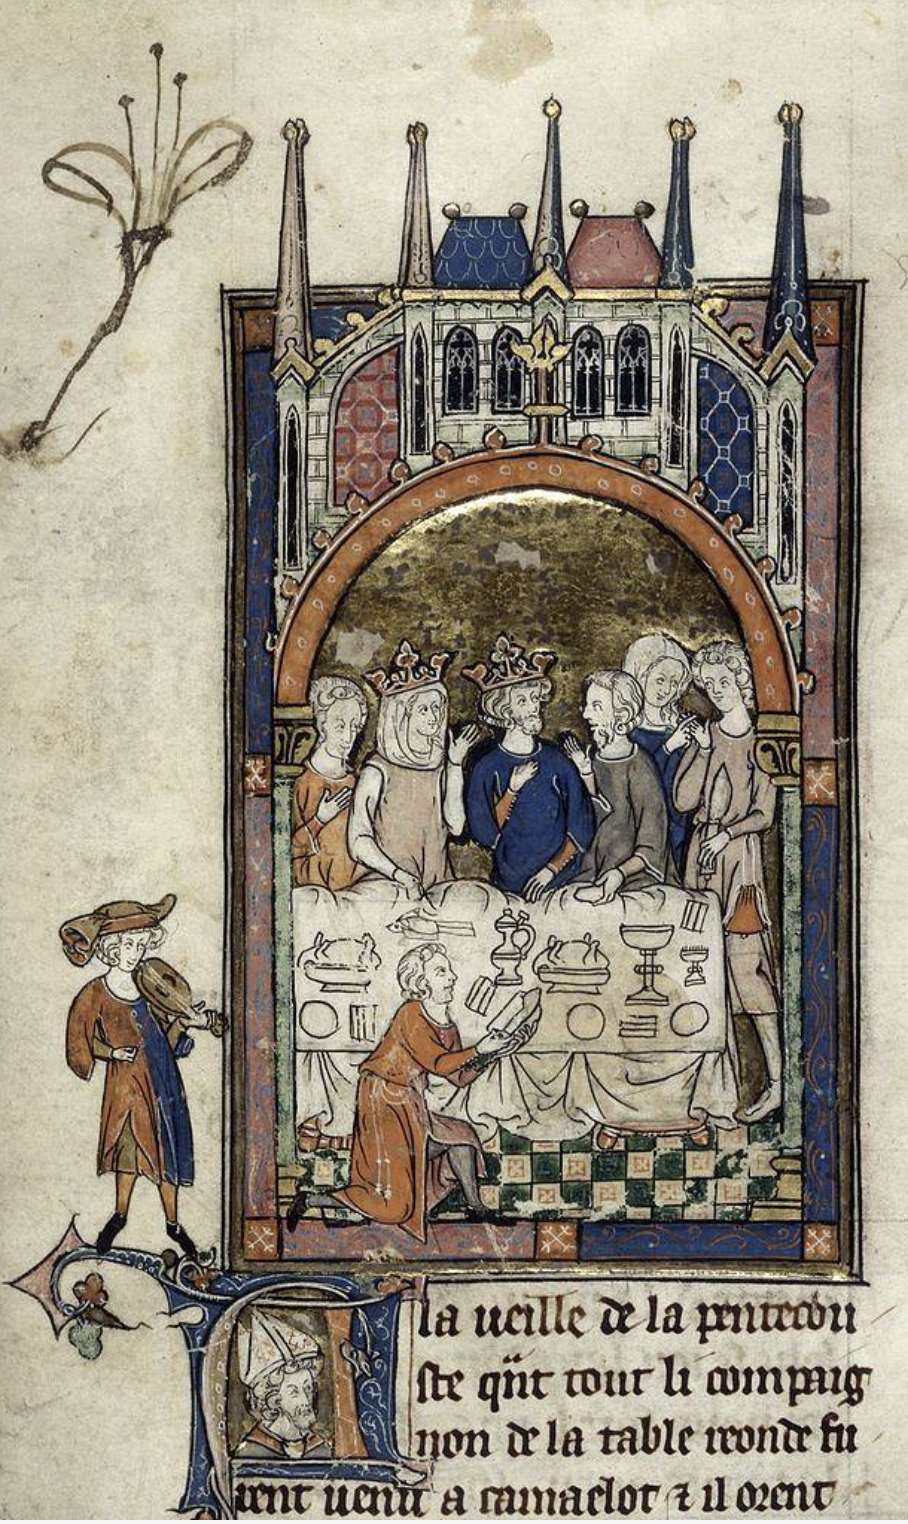 A la ueille de la pentecou
ste qñt tout li compaig
non de la table reonde fu
rent uenu a camaelot ⁊ il orent